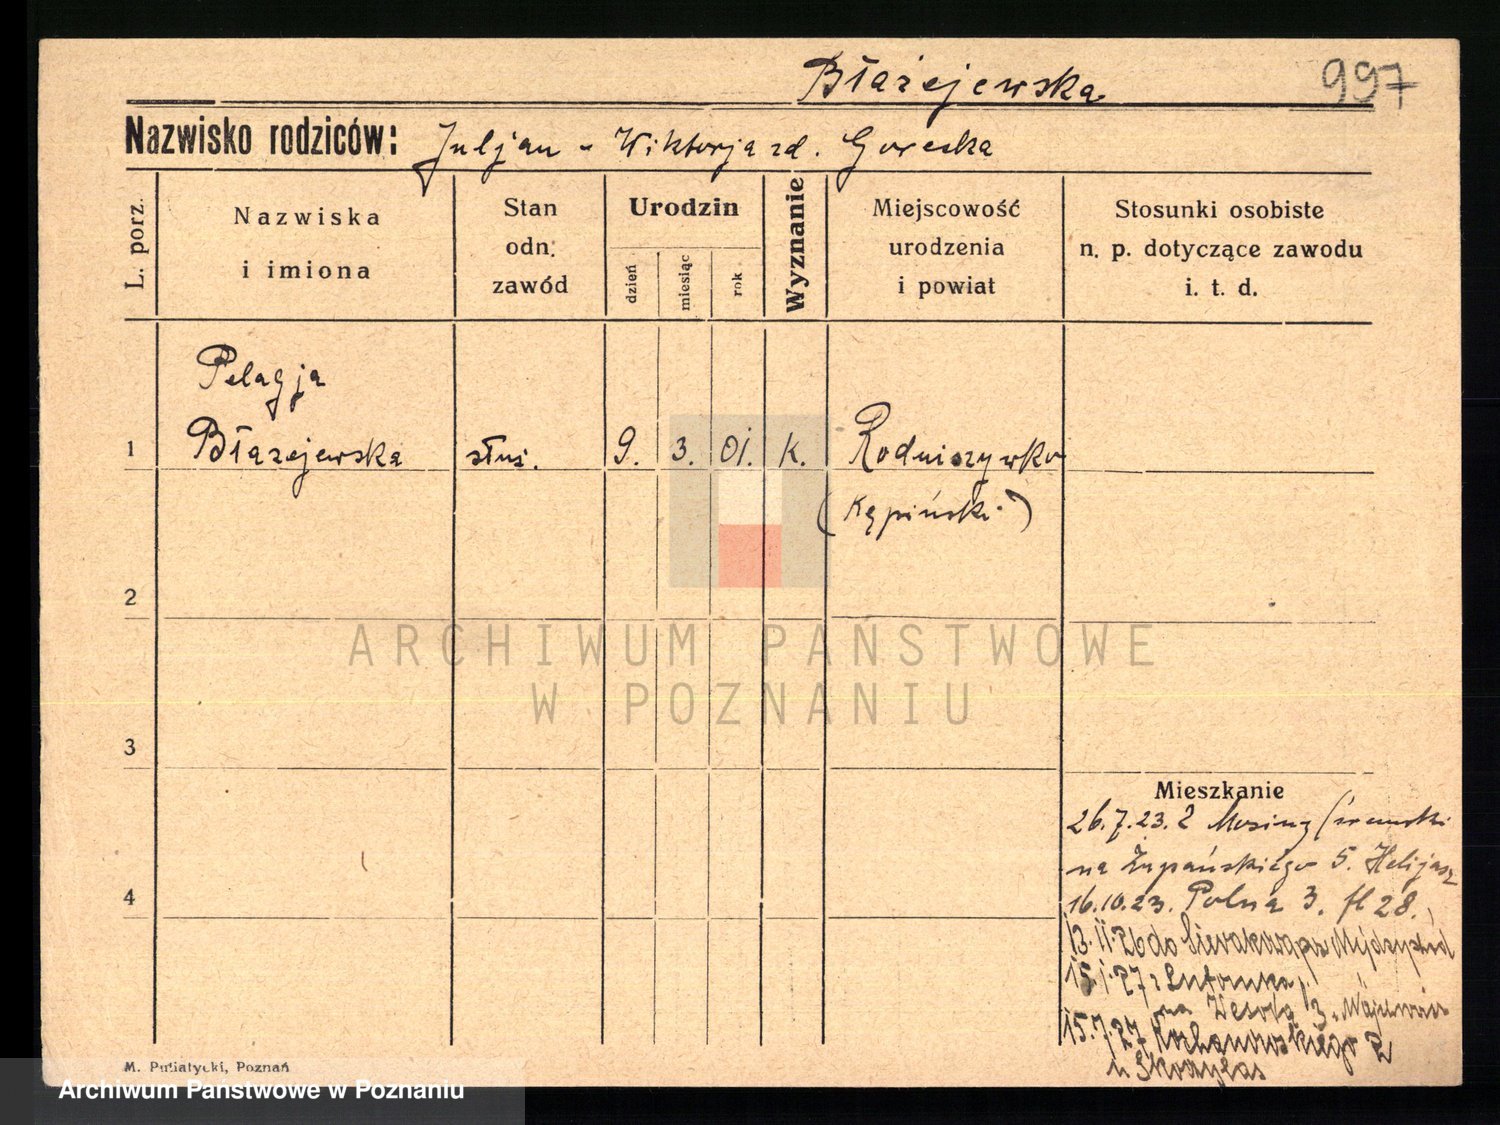 Błażejewska 997
Nazwisko rodziców: Juljan - Wiktorja zd. Gorecka
L. porz.
Nazwiska
i imiona
Stan
odn.
zawód
Urodzin
dzień
miesiąc
rok
Wyznanie
Miejscowość
urodzenia
i powiat
Stosunki osobiste
n. p. dotyczące zawodu
i. t. d.
Pelagja
1 Błazejewska służ. 9. 3. 01. k.
(Kępiński)
2
ARCHIWUM PAŃSTWOWE
W POZNANIU
3
Mieszkanie
26.7.23. z Mosiny
na Żupańskiego 5. Heljasz
16.10.23. Polna 3. fl 28.
13.11.26 do
4
15.1.27 z Lutomka
na Wesoła 3.
15.7.27 Kochanowskiego 2
u
M. Putiatycki, Poznań
Archiwum Państwowe w Poznaniu